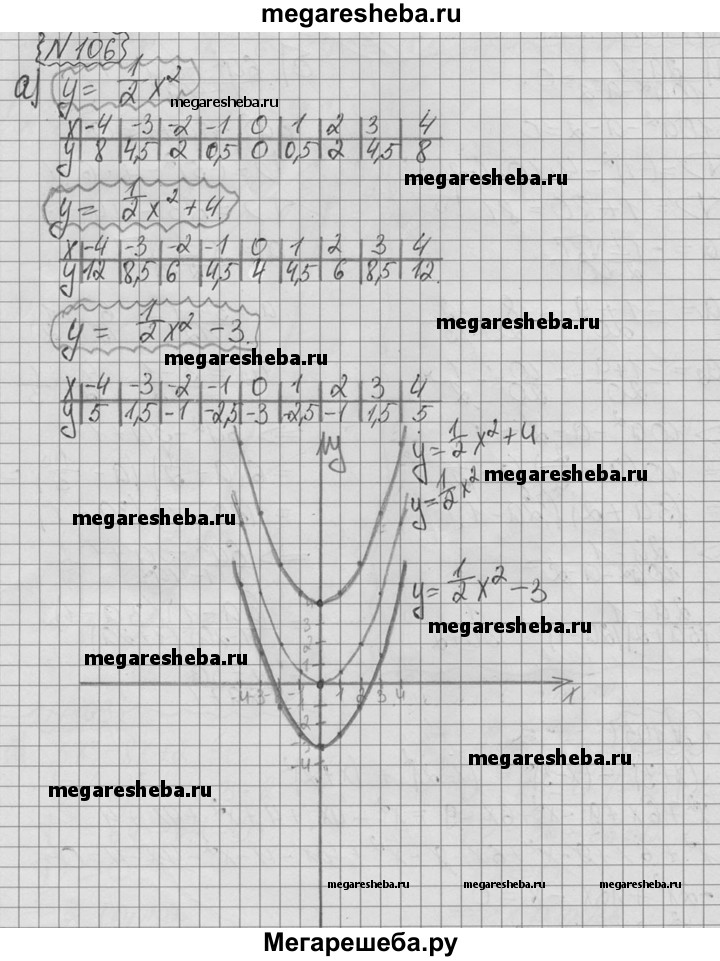 megaresheba.ru
{N 106}
а) y = 1/2 x²
megaresheba.ru
x -4 -3 -2 -1 0 1 2 3 4
y 8 4,5 2 0,5 0 0,5 2 4,5 8
megaresheba.ru
y = 1/2 x² + 4.
x -4 -3 -2 -1 0 1 2 3 4
y 12 8,5 6 4,5 4 4,5 6 8,5 12.
megaresheba.ru
y = 1/2 x² - 3.
megaresheba.ru
x -4 -3 -2 -1 0 1 2 3 4
y 5 1,5 -1 -2,5 -3 -2,5 -1 1,5 5
y
y = 1/2 x² + 4
megaresheba.ru
y = 1/2 x²
megaresheba.ru
y = 1/2 x² - 3
megaresheba.ru
4
3
2
1
megaresheba.ru
-4 -3 -1 1 2 3 4 x
-2
-3
-4
megaresheba.ru
megaresheba.ru
megaresheba.ru megaresheba.ru megaresheba.ru
Мегарешеба.ру